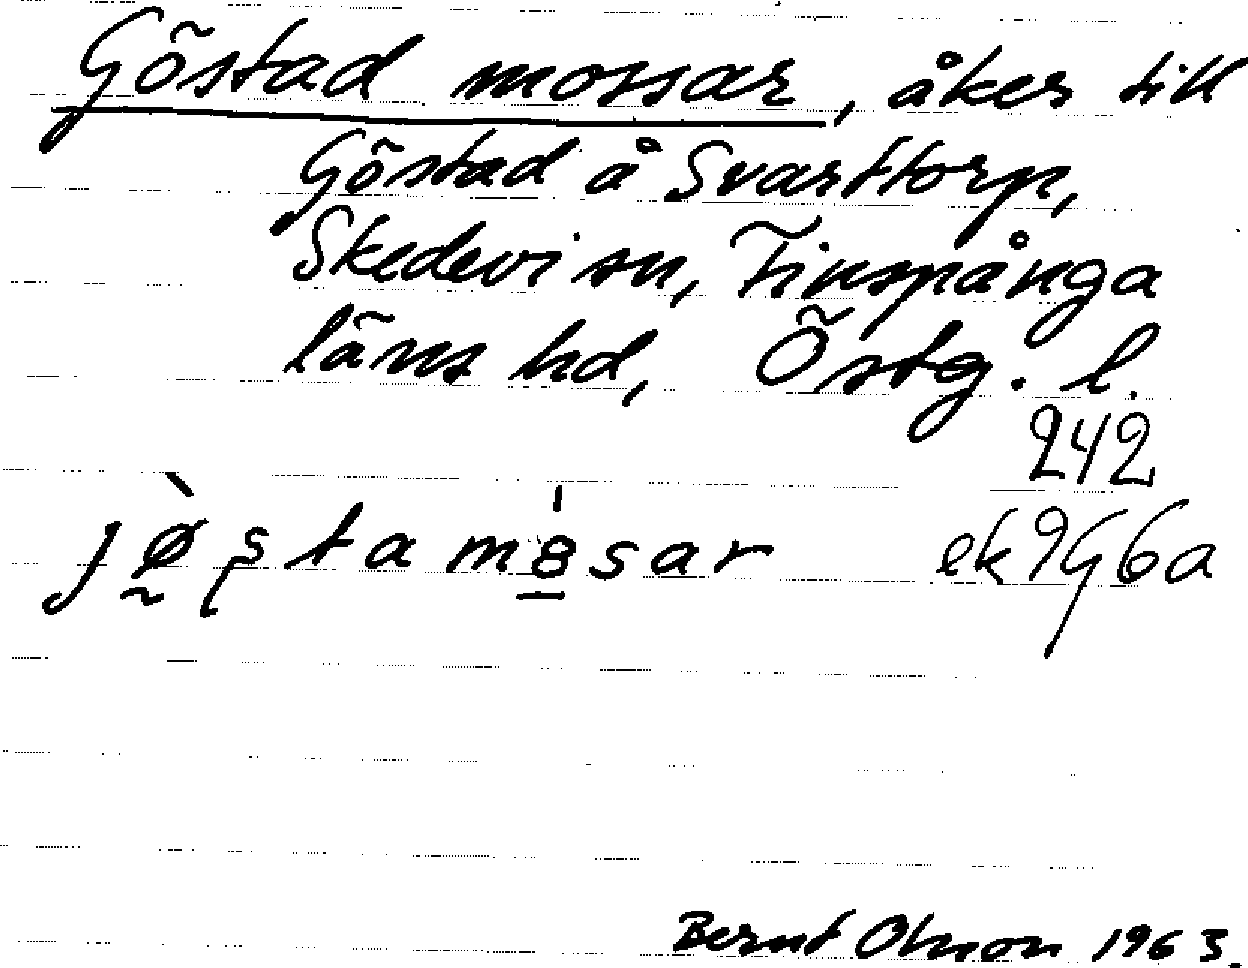 Göstad mossar, åker till
Göstad å Svarttorp,
Skedevi sn, Finspånga
läns hd, Östg. l.
242
jø̀stamɵ́sar ek 9G6a
Bernt Olsson 1963.